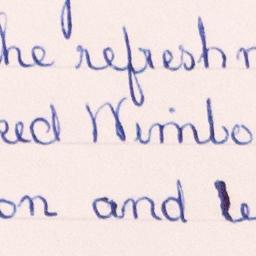 he refreshm
ed Wimbo
on and le